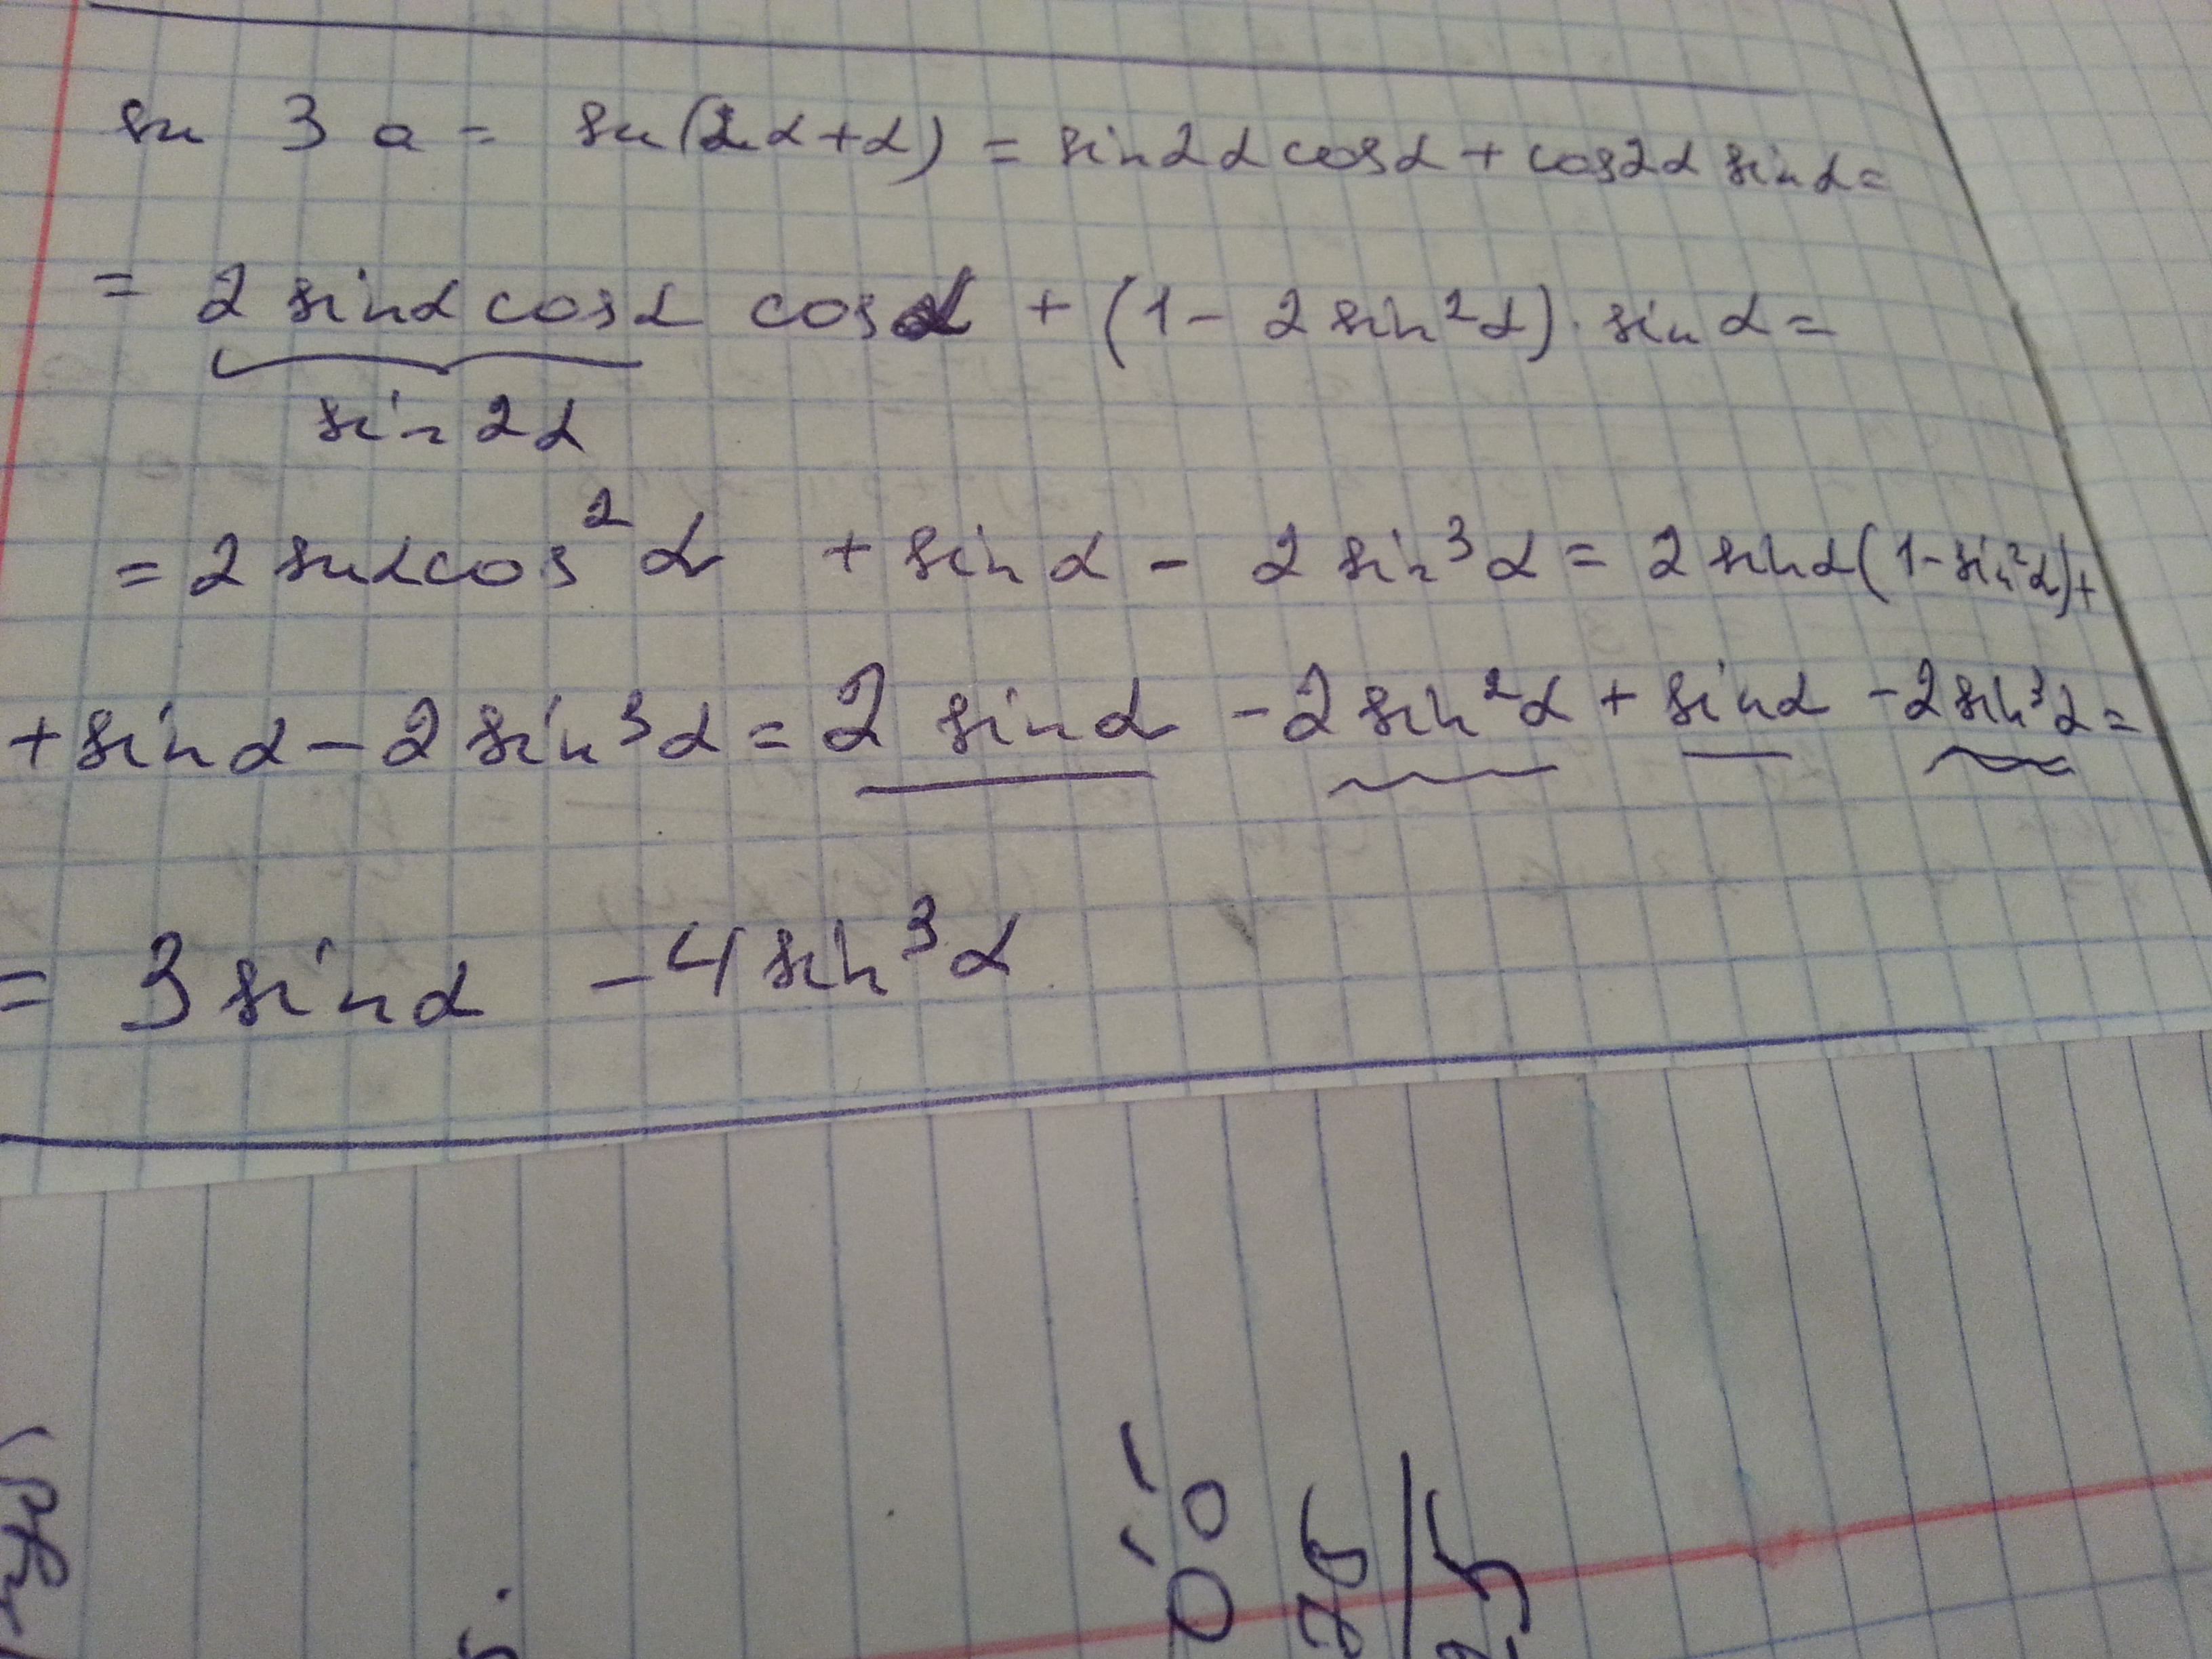 sin 3 a = sin(2α+α) = sin2αcosα + cos2α sinα=
= 2 sinα cosα cosα + (1 - 2 sin²α) · sin α =
sin 2α
= 2 sinαcos²α + sin α - 2 sin³α = 2 sinα(1-sin²α)+
+ sin α - 2 sin³α = 2 sinα - 2 sin²α + sinα - 2 sin³α =
= 3 sinα - 4 sin³α